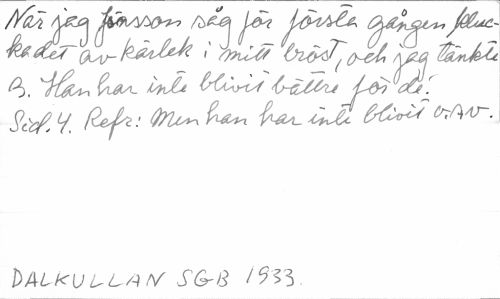 När jag Jönsson såg för första gången fluc-
kadet av kärlek i mitt bröst, och jag tänkte
B. Han har inte blivit bättre för de!
Sid. 4. Refr: Men han har inte blivit v.A.v.
DALKULLAN SGB 1933.